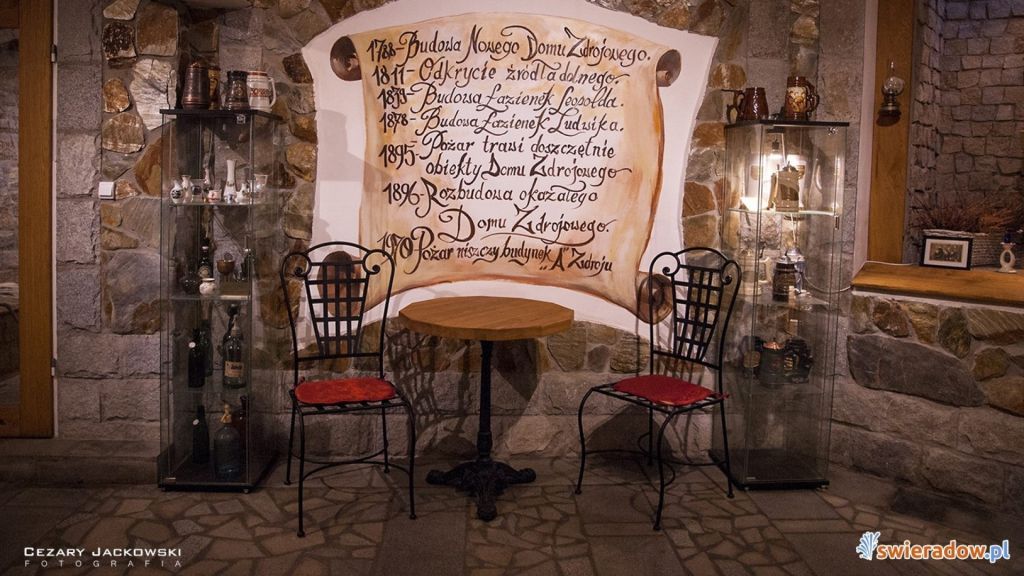 1788-Budowa Nowego Domu Zdrojowego.
1811-Odkrycie źródła dolnego
1839-Budowa Łazienek Leopolda.
1878-Budowa Łazienek Ludwika.
1895-Pożar trawi doszczętnie
obiekty Domu Zdrojowego
1896-Rozbudowa okazałego
Domu Zdrojowego.
1970-Pożar niszczy budynek „A" Zdroju
CEZARY JACKOWSKI
FOTOGRAFIA
swieradow.pl